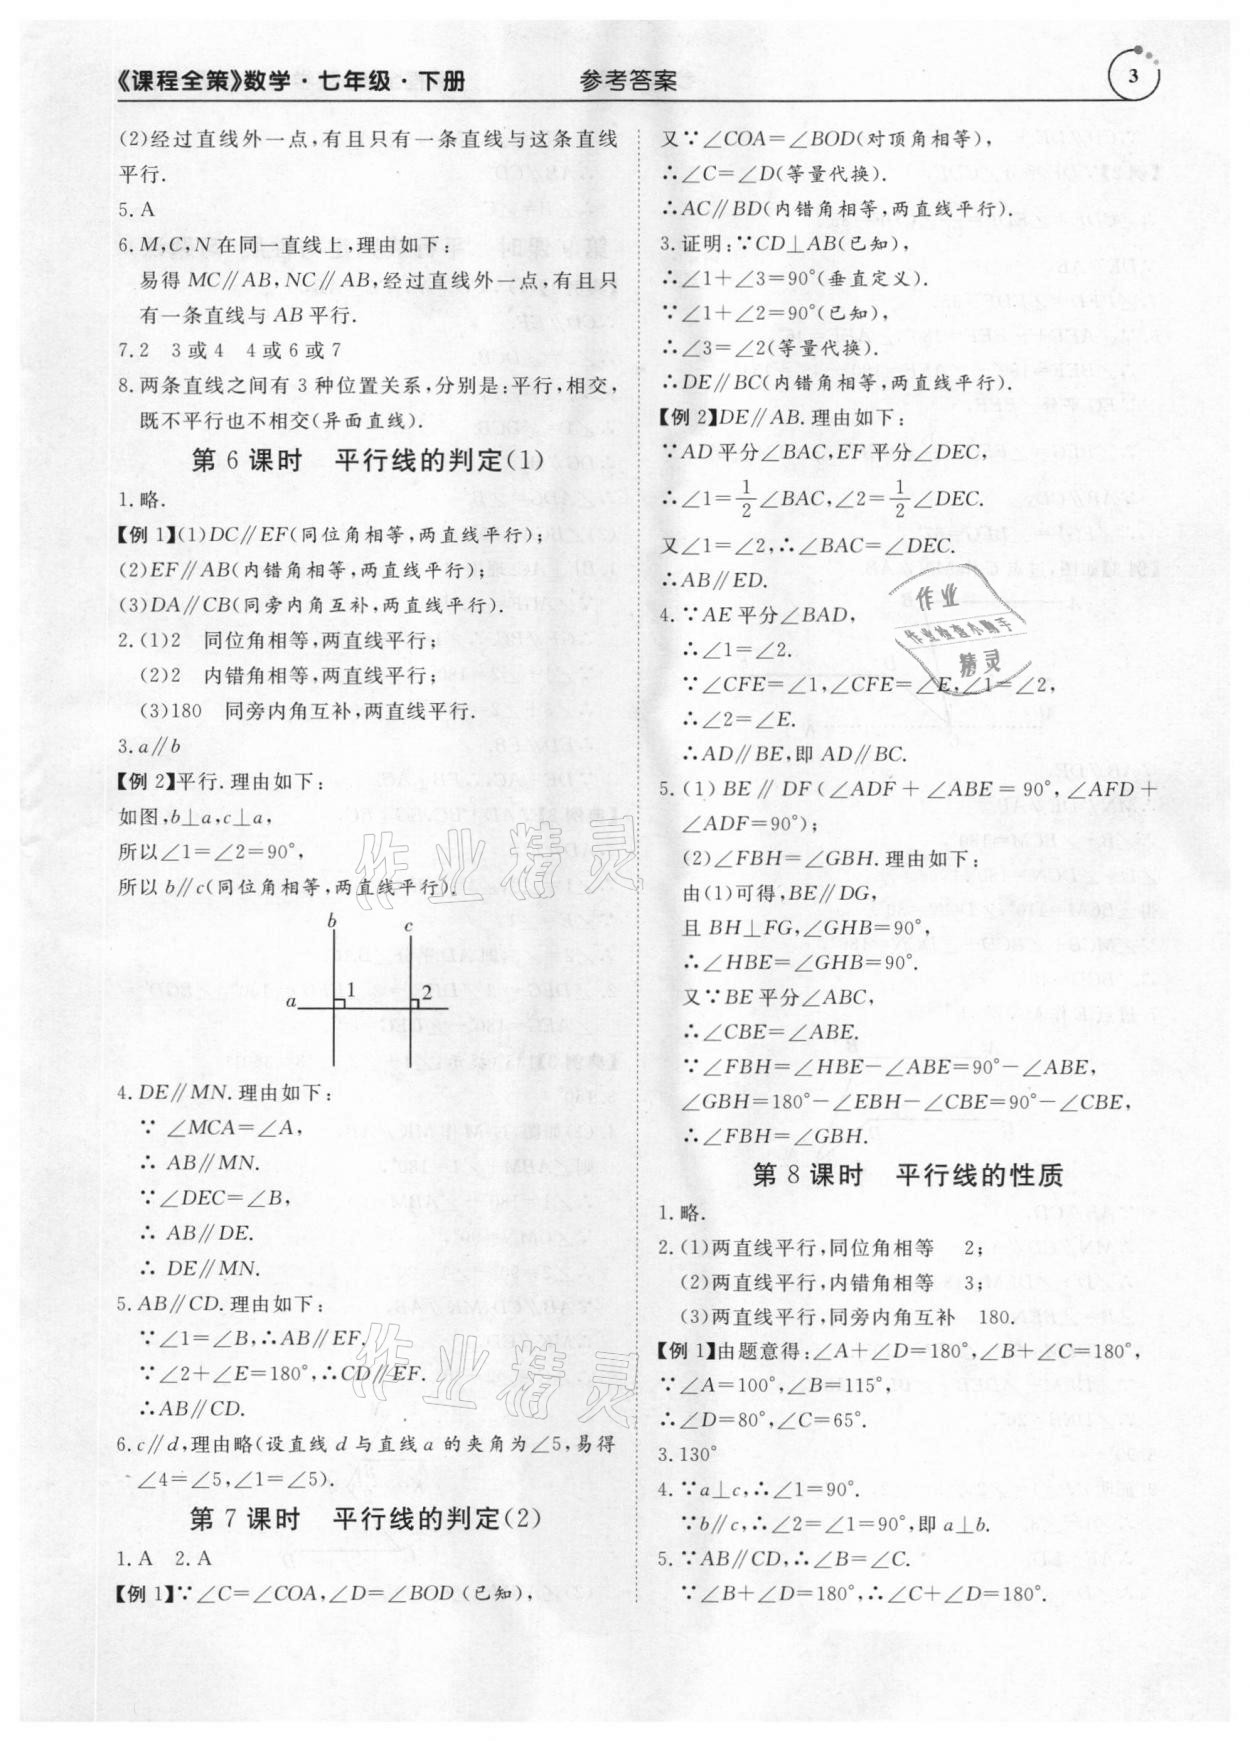 《课程全策》数学·七年级·下册
参考答案
3
(2)经过直线外一点,有且只有一条直线与这条直线
平行.
5.A
6.M,C,N在同一直线上,理由如下:
易得MC∥AB,NC∥AB,经过直线外一点,有且只
有一条直线与AB平行.
7.2 3或4 4或6或7
8.两条直线之间有3种位置关系,分别是:平行,相交,
既不平行也不相交(异面直线).
第6课时 平行线的判定(1)
1.略.
【例1】(1)DC∥EF(同位角相等,两直线平行);
(2)EF∥AB(内错角相等,两直线平行);
(3)DA∥CB(同旁内角互补,两直线平行).
2.(1)2 同位角相等,两直线平行;
(2)2 内错角相等,两直线平行;
(3)180 同旁内角互补,两直线平行.
3.a∥b
【例2】平行.理由如下:
如图,b⊥a,c⊥a,
所以∠1=∠2=90°,
所以b∥c(同位角相等,两直线平行).
b
c
a
1
2
4.DE∥MN.理由如下:
∵ ∠MCA=∠A,
∴ AB∥MN.
∵∠DEC=∠B,
∴ AB∥DE.
∴ DE∥MN.
5.AB∥CD.理由如下:
∵∠1=∠B,∴AB∥EF.
∵∠2+∠E=180°,∴CD∥EF.
∴AB∥CD.
6.c∥d,理由略(设直线d与直线a的夹角为∠5,易得
∠4=∠5,∠1=∠5).
第7课时 平行线的判定(2)
1.A 2.A
【例1】∵∠C=∠COA,∠D=∠BOD(已知),
又∵∠COA=∠BOD(对顶角相等),
∴∠C=∠D(等量代换).
∴AC∥BD(内错角相等,两直线平行).
3.证明:∵CD⊥AB(已知),
∴∠1+∠3=90°(垂直定义).
∵∠1+∠2=90°(已知),
∴∠3=∠2(等量代换).
∴DE∥BC(内错角相等,两直线平行).
【例2】DE∥AB.理由如下:
∵AD平分∠BAC,EF平分∠DEC,
∴∠1=1/2∠BAC,∠2=1/2∠DEC.
又∠1=∠2,∴∠BAC=∠DEC.
∴AB∥ED.
4.∵AE平分∠BAD,
∴∠1=∠2.
∵∠CFE=∠1,∠CFE=∠E,∠1=∠2,
∴∠2=∠E.
∴AD∥BE,即AD∥BC.
5.(1)BE∥DF(∠ADF+∠ABE=90°,∠AFD+
∠ADF=90°);
(2)∠FBH=∠GBH.理由如下:
由(1)可得,BE∥DG,
且BH⊥FG,∠GHB=90°,
∴∠HBE=∠GHB=90°.
又∵BE平分∠ABC,
∴∠CBE=∠ABE.
∵∠FBH=∠HBE-∠ABE=90°-∠ABE,
∠GBH=180°-∠EBH-∠CBE=90°-∠CBE,
∴∠FBH=∠GBH.
第8课时 平行线的性质
1.略.
2.(1)两直线平行,同位角相等 2;
(2)两直线平行,内错角相等 3;
(3)两直线平行,同旁内角互补 180.
【例1】由题意得:∠A+∠D=180°,∠B+∠C=180°,
∵∠A=100°,∠B=115°,
∴∠D=80°,∠C=65°.
3.130°
4.∵a⊥c,∴∠1=90°.
∵b∥c,∴∠2=∠1=90°,即a⊥b.
5.∵AB∥CD,∴∠B=∠C.
∵∠B+∠D=180°,∴∠C+∠D=180°.
作业
作业检查小助手
精灵
作业精灵
作业精灵